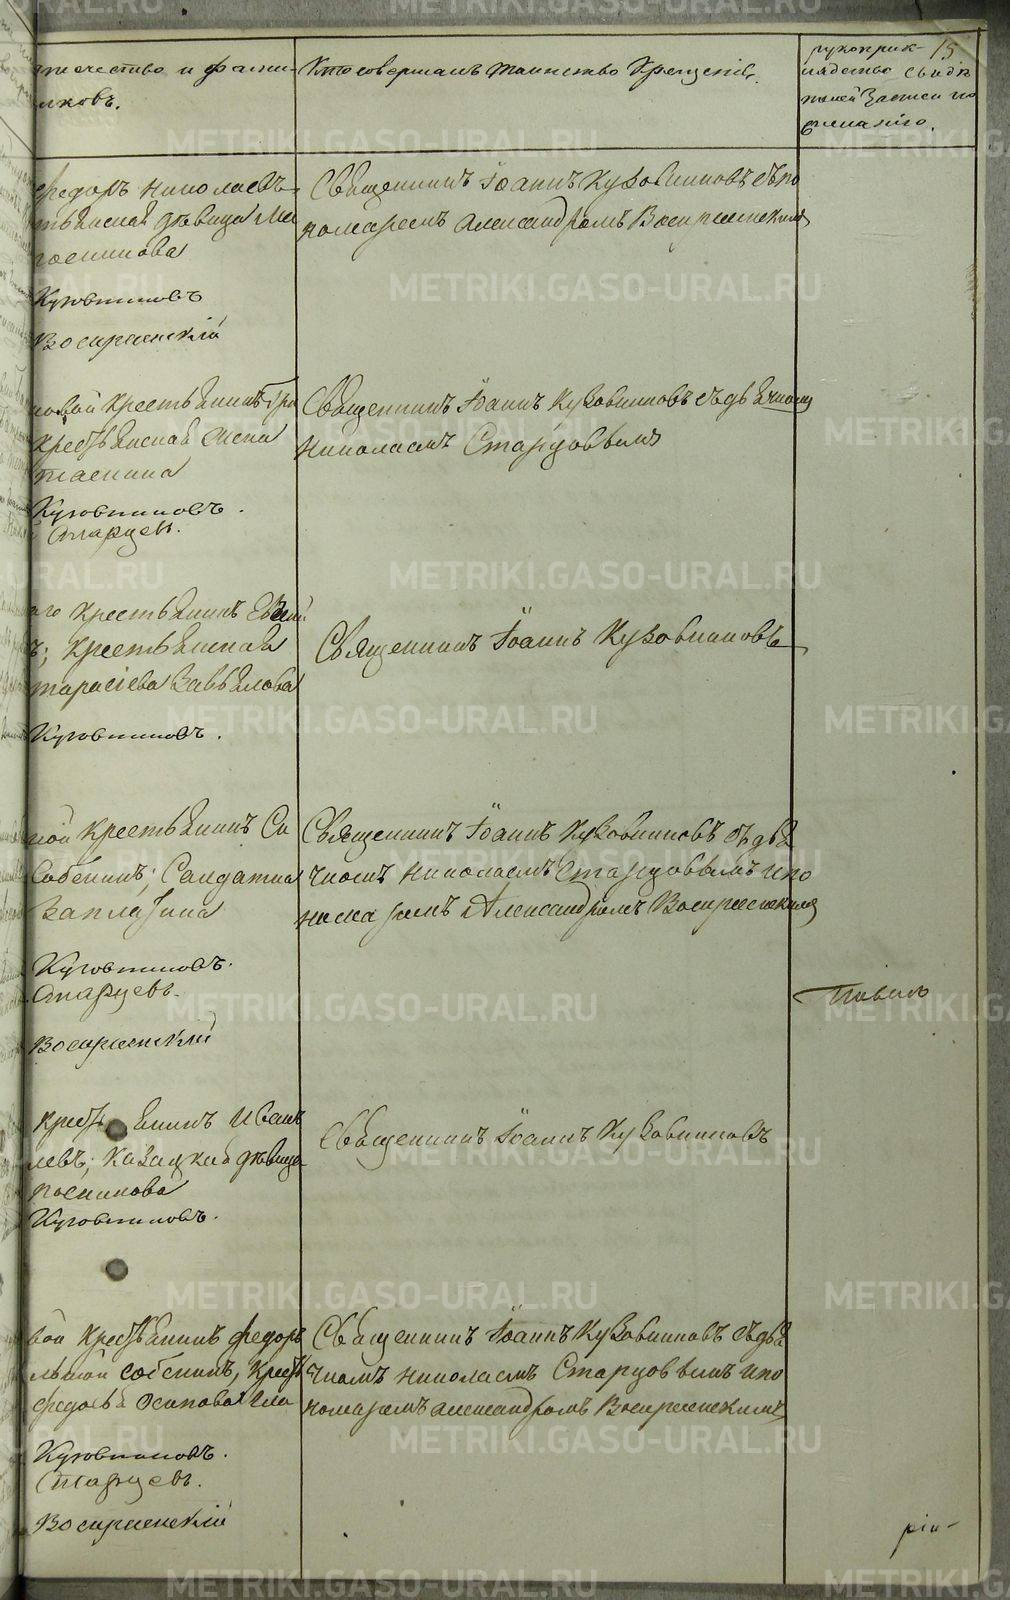 15
отчество и фами-
Кто совершалъ таинство Крещенія.
рукоприк-
ладство свидѣ
телей записи по
желанію.
Федоръ Николаевъ
дѣвица
Кузовниковъ
Воскресенскій
Священникъ Іоаннъ Кузовниковъ съ по
номаремъ Александромъ Воскресенскимъ
Крестьянинъ
Крестьянская жена
Кузовниковъ.
Старцевъ.
Священникъ Іоаннъ Кузовниковъ съ дьячкомъ
Николаемъ Старцовымъ
Крестьянинъ
Крестьянская
Завьялова
Кузовниковъ.
Священникъ Іоаннъ Кузовниковъ
Крестьянинъ Си
Собенинъ; Солдатка
Заплатина
Кузовниковъ.
Старцевъ.
Воскресенскій
Священникъ Іоаннъ Кузовниковъ съ дья
чкомъ Николаемъ Старцовымъ и по
номаремъ Александромъ Воскресенскимъ
Крестьянинъ Иванъ
левъ; Казацкая дѣвица
Кузовниковъ.
Священникъ Іоаннъ Кузовниковъ
вой Крестьянинъ Федоръ
Собенинъ, Крест
Осипова
Кузовниковъ.
Старцевъ.
Воскресенскій
Священникъ Іоаннъ Кузовниковъ съ дья
чкомъ Николаемъ Старцовымъ и по
номаремъ Александромъ Воскресенскимъ
METRIKI.GASO-URAL.RU